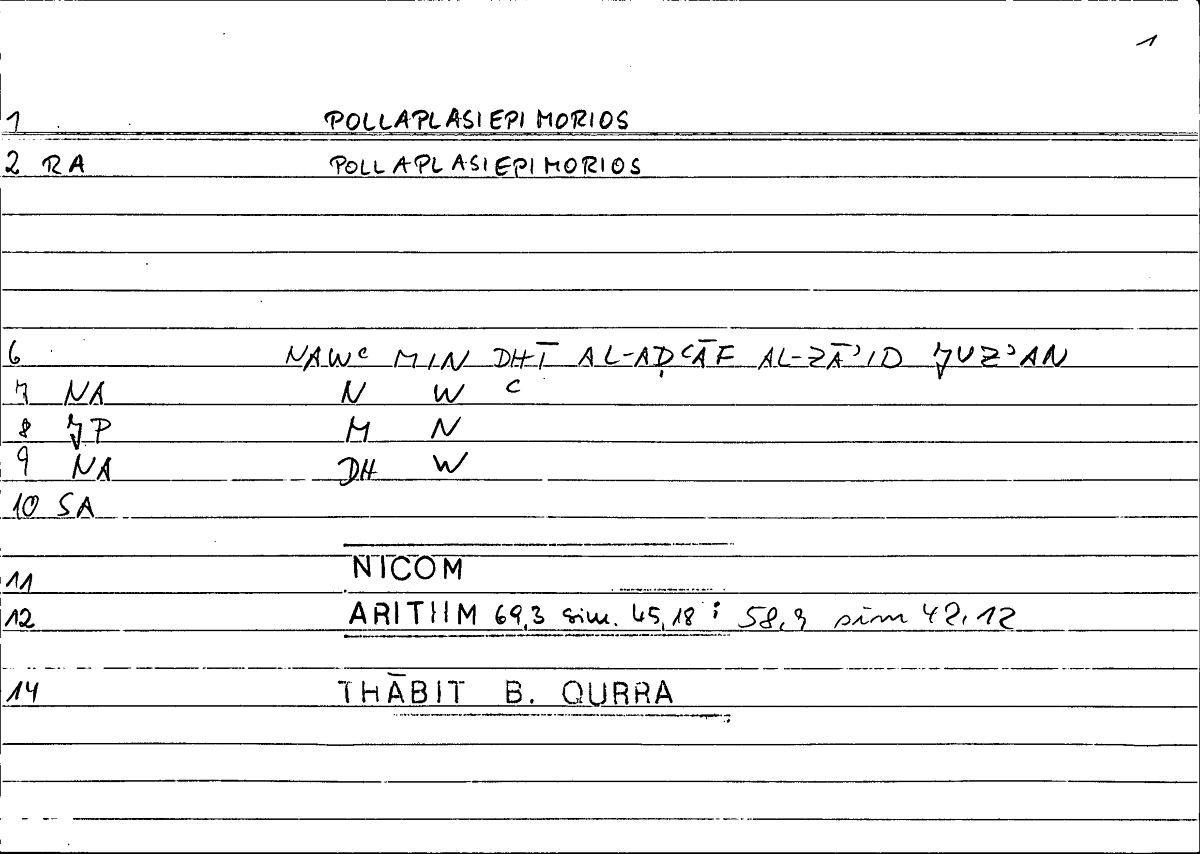 1
1 POLLAPLASIEPIMORIOS
2 RA POLLAPLASIEPIMORIOS
6 NAWᶜ MIN DHĪ AL-AḌᶜĀF AL-ZĀʾID JUZʾAN
7 NA N W ᶜ
8 JP M N
9 NA DH W
10 SA
11 NICOM
12 ARITHM 69,3 sim. 45,18 ; 58,9 sim 42,12
14 THĀBIT B. QURRA